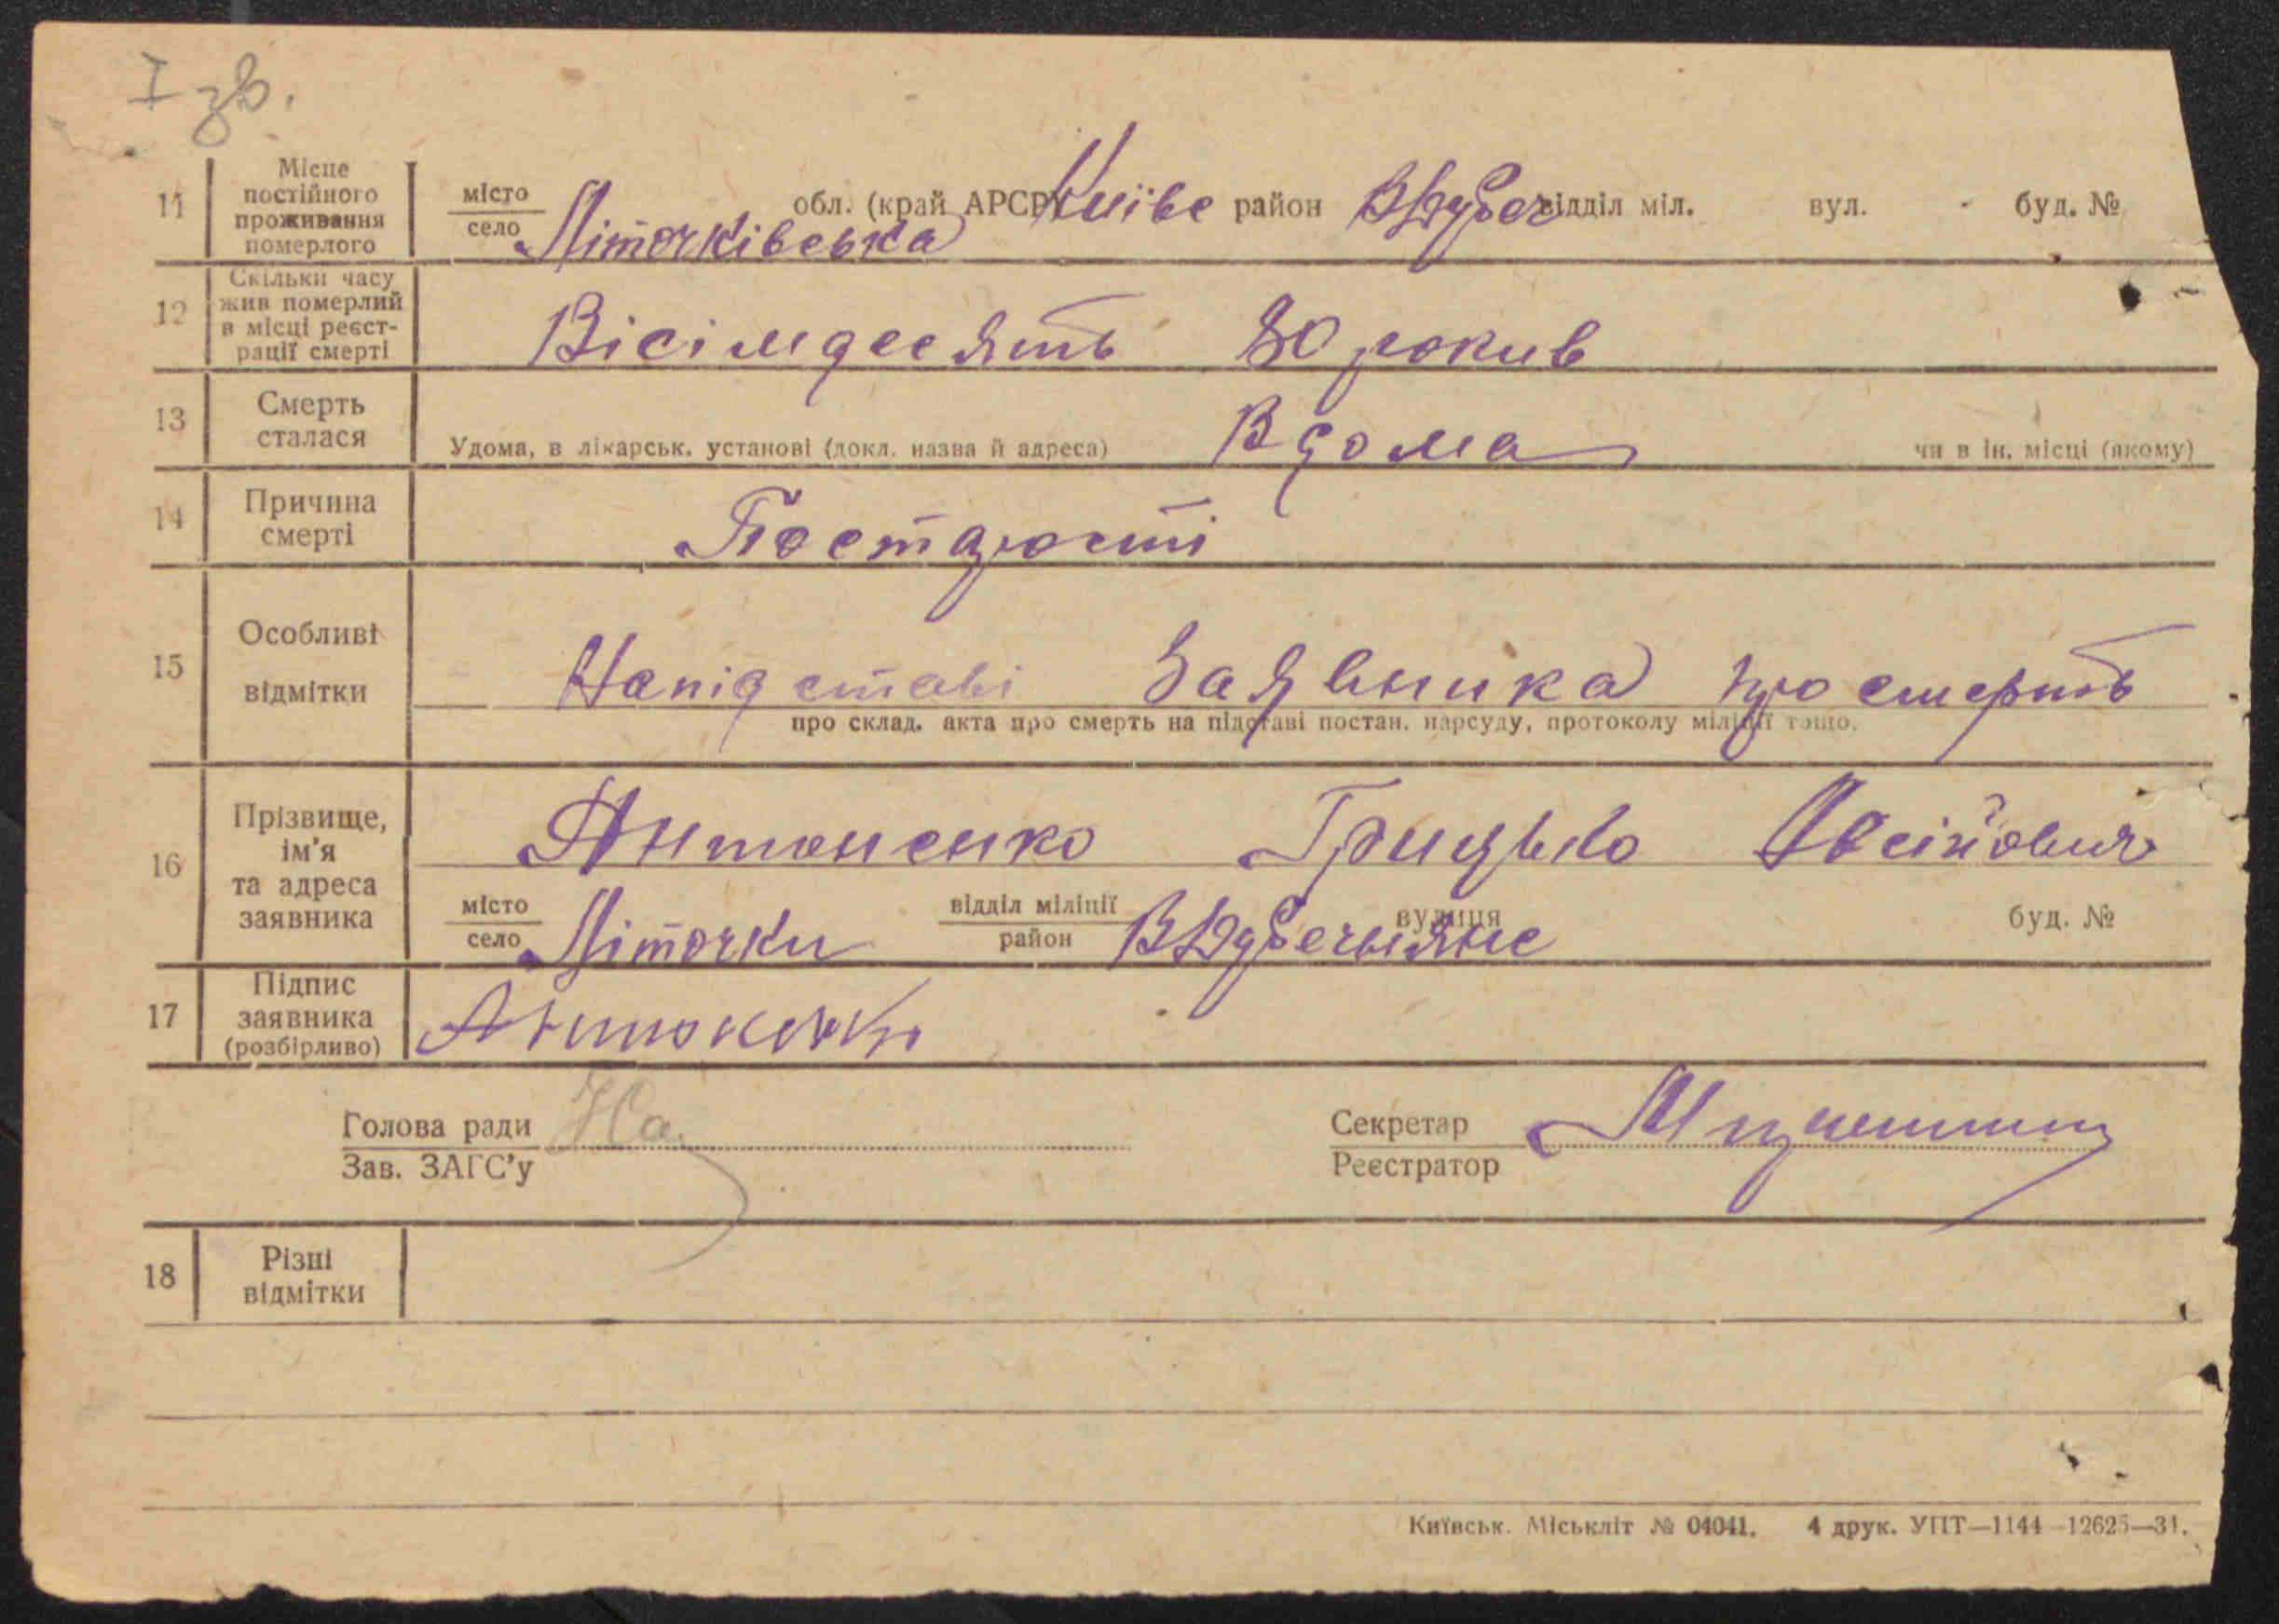 І зв.
11 Місце постійного проживання померлого місто село Літочківська обл. (край АРСРУ Київс район В Дубеч відділ міл. вул. буд. №
12 Скільки часу жив померлий в місці реєстрації смерті Вісімдесять 80 рокив
13 Смерть сталася Удома, в лікарськ. установі (докл. назва й адреса) Вдома чи в ін. місці (якому)
14 Причина смерті Постарості
15 Особливі відмітки Напідставі Заявника про смерть
про склад. акта про смерть на підставі постан. нарсуду, протоколу міліції тощо.
16 Прізвище, ім'я та адреса заявника Антоненко Грицько Явсійович
місто село Літочки відділ міліції район В Дубечньянс вулиця буд. №
17 Підпис заявника (розбірливо) Антоненко
Голова ради Зав. ЗАГС'у Секретар Реєстратор
18 Різні відмітки
Київськ. Міськліт № 04041. 4 друк. УПТ—1144—12625—31.